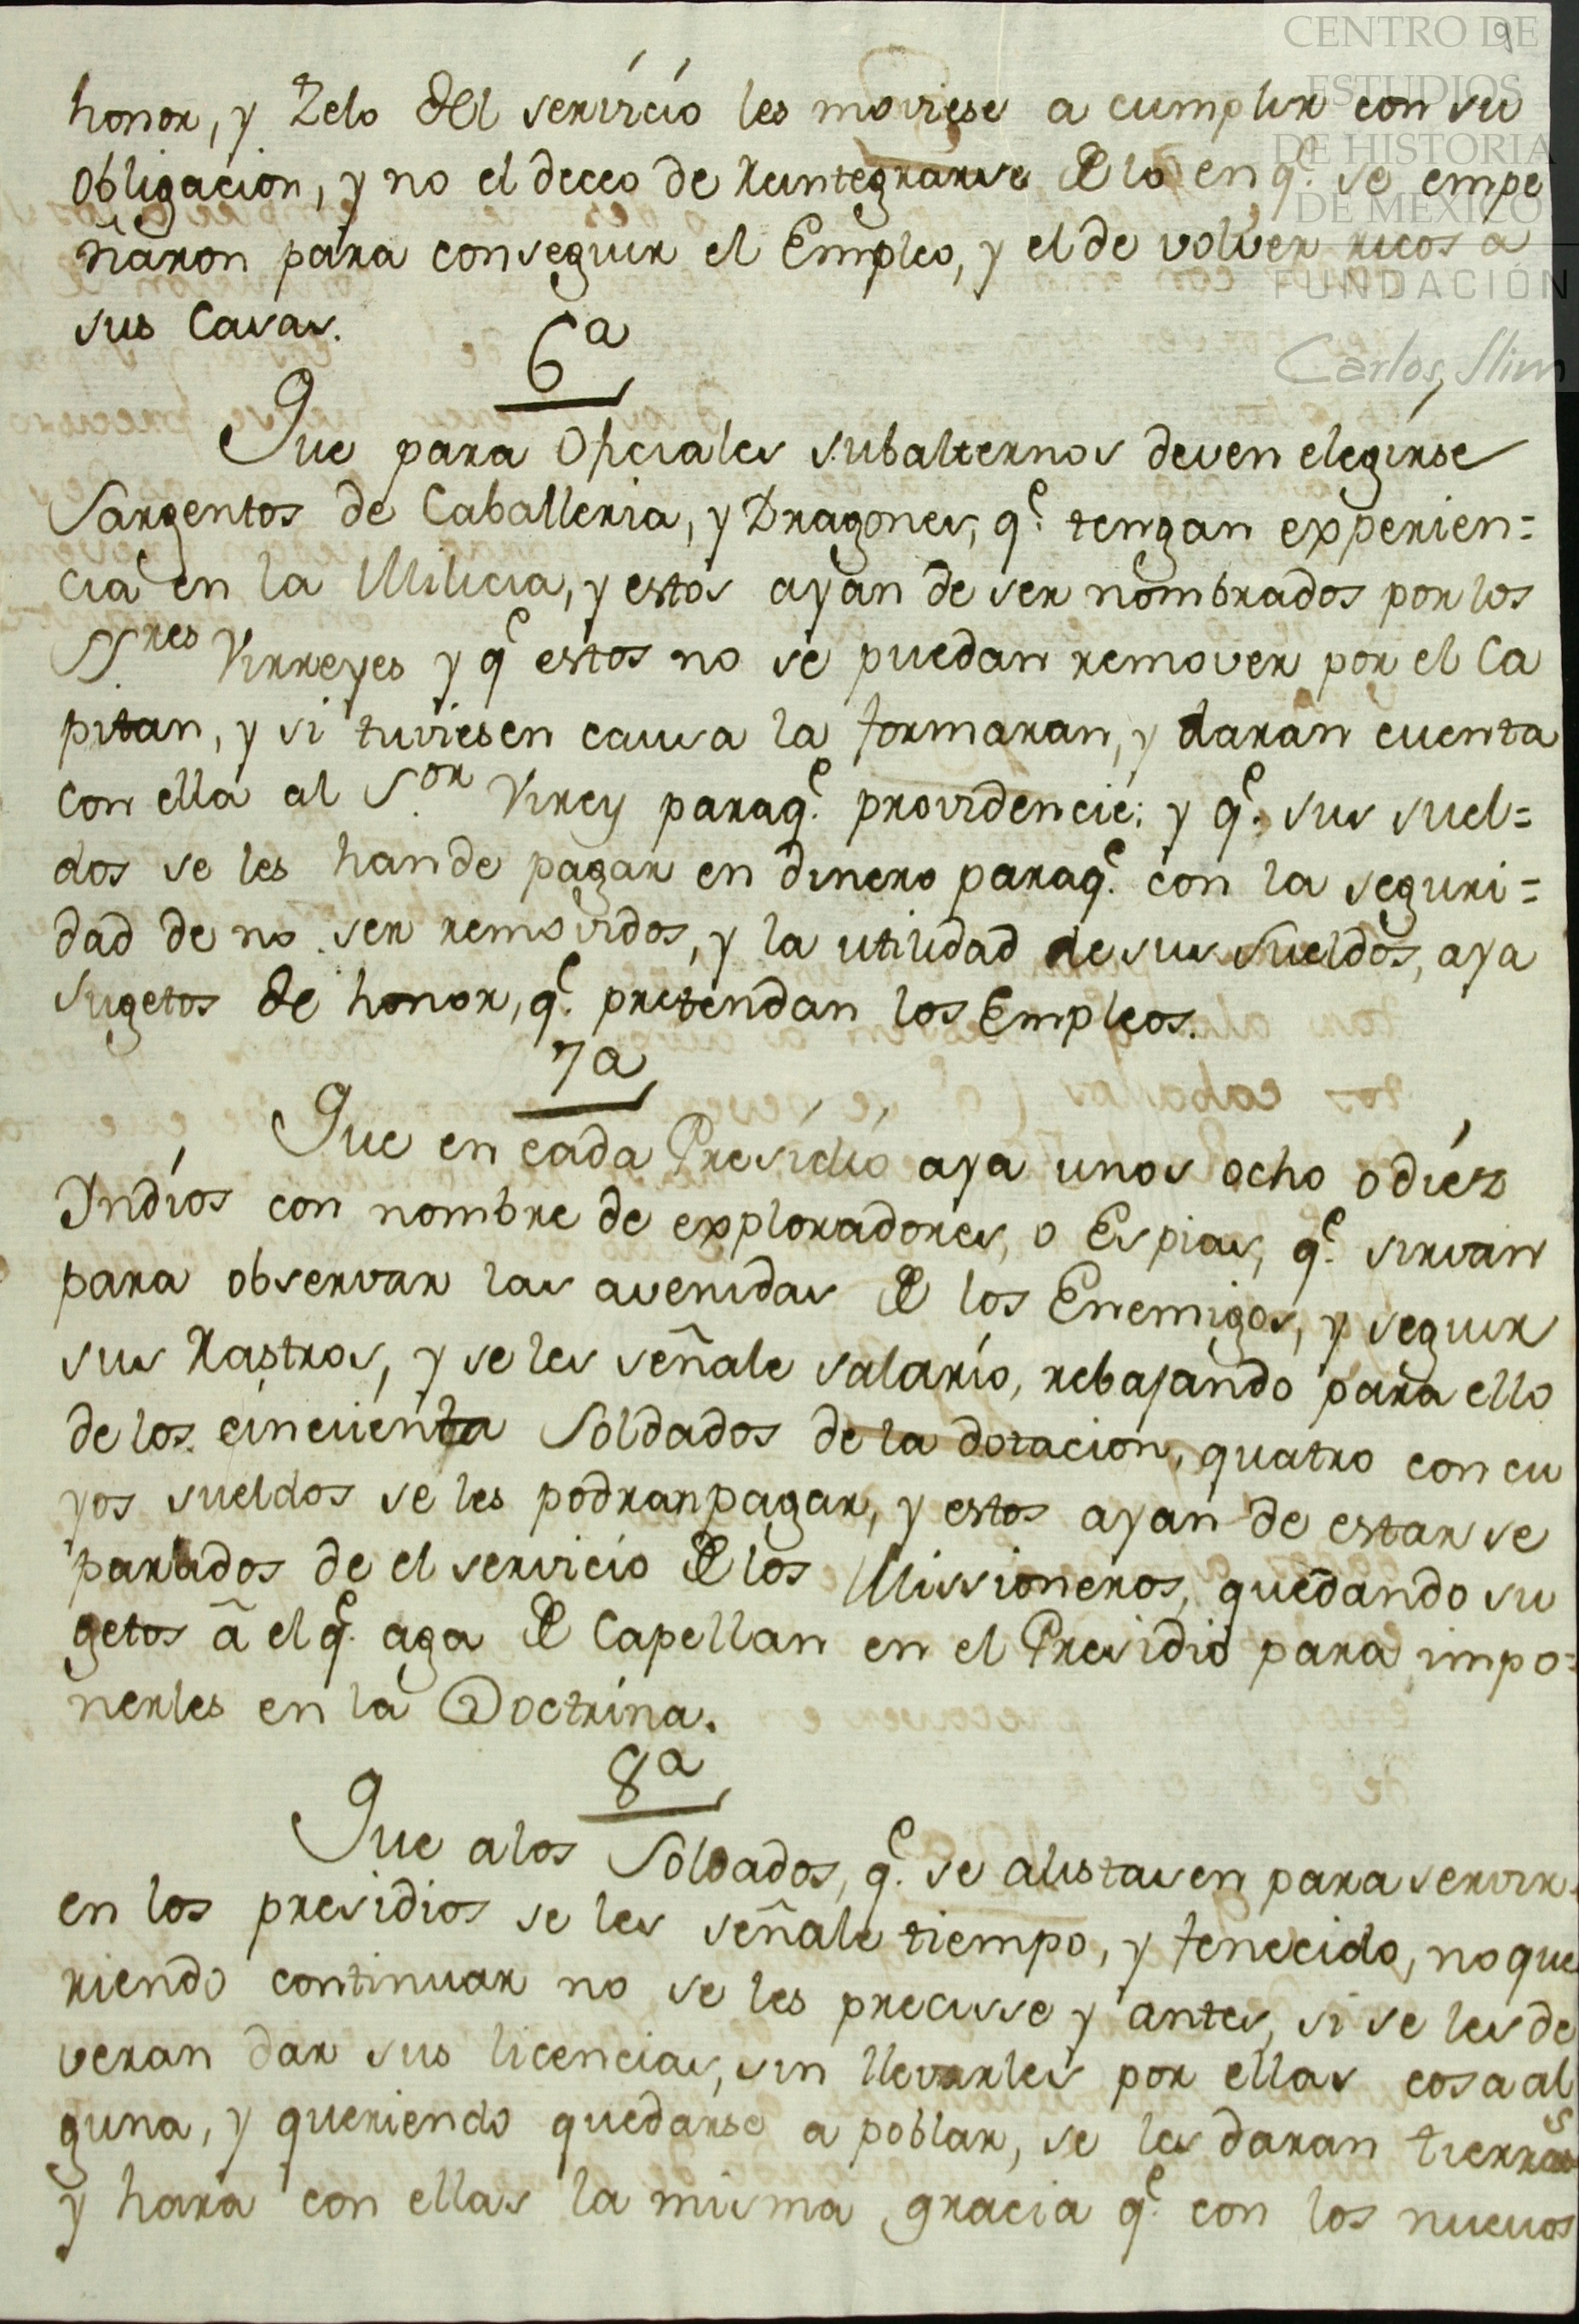 CENTRO DE
ESTUDIOS
DE HISTORIA
DE MEXICO
FUNDACIÓN
Carlos Slim
9
honor, y Zelo del servicio les moviese a cumplir con su
obligacion, y no el deceo de Reintegrarse de lo en q.e se empe
ñaron para conseguir el Empleo, y el de volver ricos a
sus Casas.
6a
Que para Oficiales subalternos deven elegirse
Sargentos de Caballeria, y Dragones, q.e tengan experien=
cia en la Milicia, y estos ayan de ser nombrados por los
SS.res Virreyes y q.e estos no se puedan remover por el Ca
pitan, y si tuviesen causa la formaran, y daran cuenta
con ella al S.or Virey paraq.e providencie: y q.e sus suel=
dos se les hande pagar en dinero paraq.e con la seguri=
dad de no ser removidos, y la utilidad de sus sueldos, aya
sugetos de honor, q.e pretendan los Empleos.
7a
Que en cada Presidio aya unos ocho o diez
Indios con nombre de exploradores, o Espias, q.e sirvan
para observar las avenidas de los Enemigos, y seguir
sus Rastros, y se les señale salario, rebajando para ello
de los cincuenta Soldados de la dotacion, quatro con cu
yos sueldos se les podran pagar, y estos ayan de estar se
parados de el servicio de los Missioneros, quedando su
getos ã el q.e aga de Capellan en el Presidio para impo=
nerles en la Doctrina.
8a
Que a los Soldados, q.e se alistasen para servir
en los presidios se les señale tiempo, y fenecido, no que
riendo continuar no se les precisse y antes, si se les de
veran dar sus licencias, sin llevarles por ellas cosa al
guna, y queriendo quedarse a poblar, se les daran tierras
y hara con ellas la misma gracia q.e con los nuevos